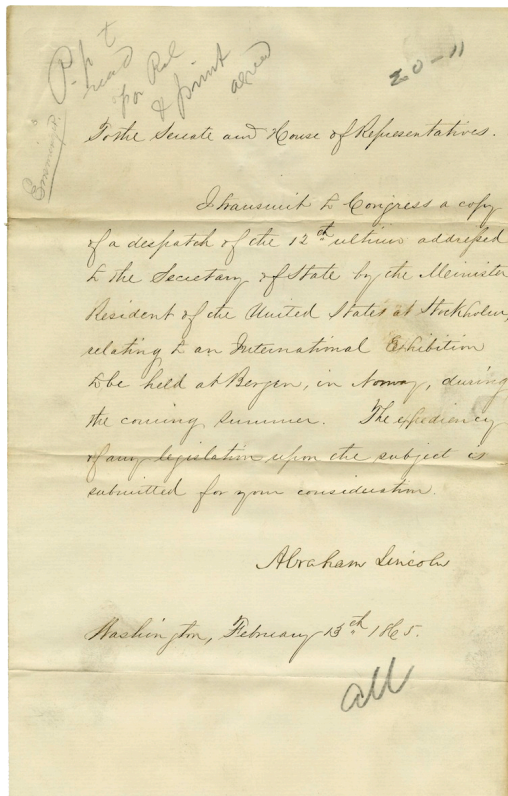 P.pt
read
for Rel
& print
agreed
20-11
To the Senate and House of Representatives.
I transmit to Congress a copy
of a despatch of the 12th ultimo addressed
to the Secretary of State by the Minister
Resident of the United States at Stockholm,
relating to an International Exhibition
to be held at Bergen, in Norway, during
the coming summer. The expediency
of any legislation upon the subject is
submitted for your consideration.
Abraham Lincoln
Washington, February 13th 1865.
all